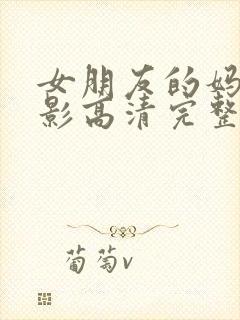 女朋友的妈
影高清完整
葡萄v